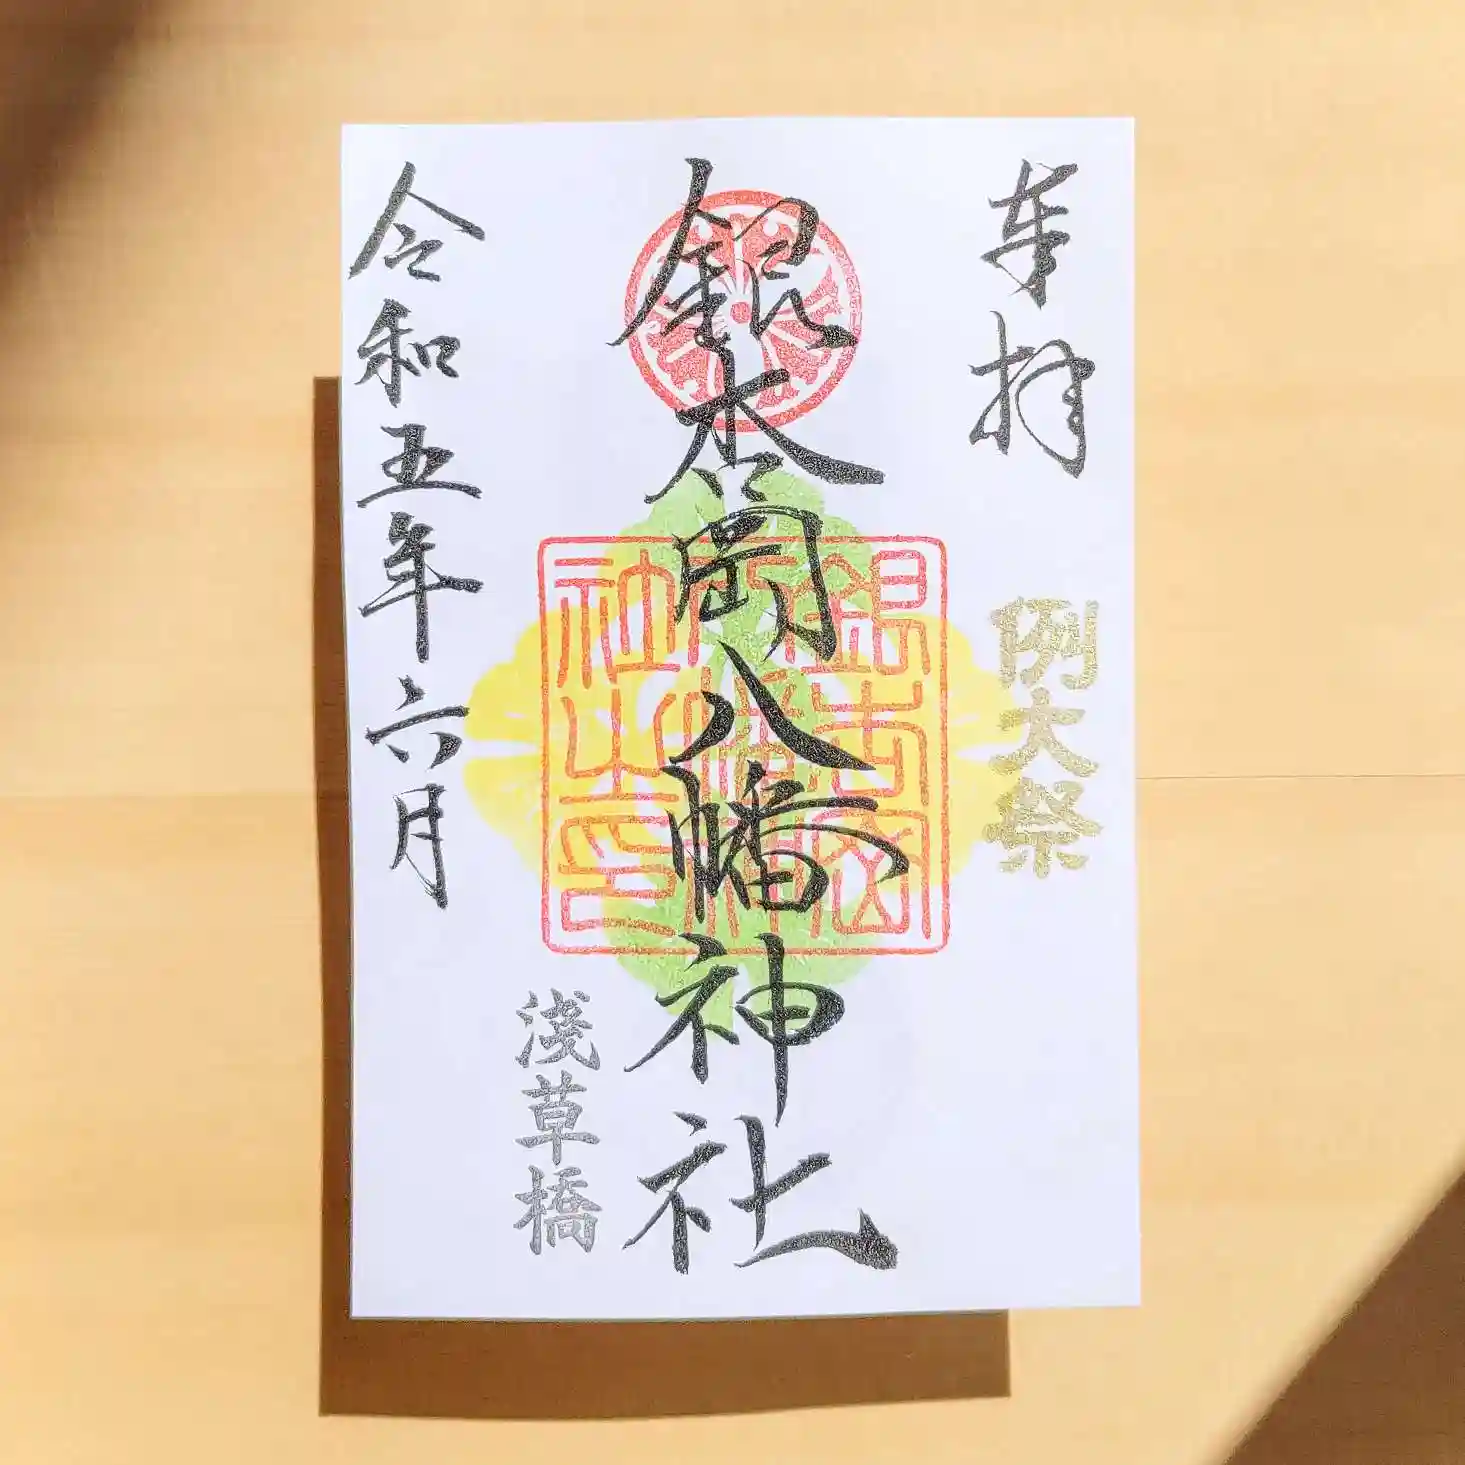 奉拝
例大祭
銀杏岡八幡神社
銀杏岡
八幡神
社之印
淺草橋
令和五年六月